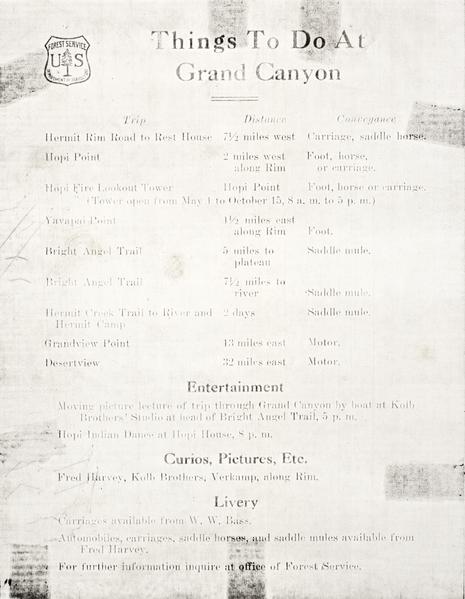 FOREST SERVICE
U S
DEPARTMENT OF AGRICULTURE
Things To Do At
Grand Canyon
Trip Distance Conveyance
Hermit Rim Road to Rest House 7½ miles west Carriage, saddle horse.
Hopi Point 2 miles west Foot, horse,
along Rim or carriage.
Hopi Fire Lookout Tower Hopi Point Foot, horse or carriage.
(Tower open from May 1 to October 15, 8 a. m. to 5 p. m.)
Yavapai Point 1½ miles east
along Rim Foot.
Bright Angel Trail 5 miles to Saddle mule.
plateau
Bright Angel Trail 7½ miles to
river Saddle mule.
Hermit Creek Trail to River and 2 days Saddle mule.
Hermit Camp
Grandview Point 13 miles east Motor.
Desertview 32 miles east Motor.
Entertainment
Moving picture lecture of trip through Grand Canyon by boat at Kolb
Brothers' Studio at head of Bright Angel Trail, 5 p. m.
Hopi Indian Dance at Hopi House, 8 p. m.
Curios, Pictures, Etc.
Fred Harvey, Kolb Brothers, Verkamp, along Rim.
Livery
Carriages available from W. W. Bass.
Automobiles, carriages, saddle horses, and saddle mules available from
Fred Harvey.
For further information inquire at office of Forest Service.